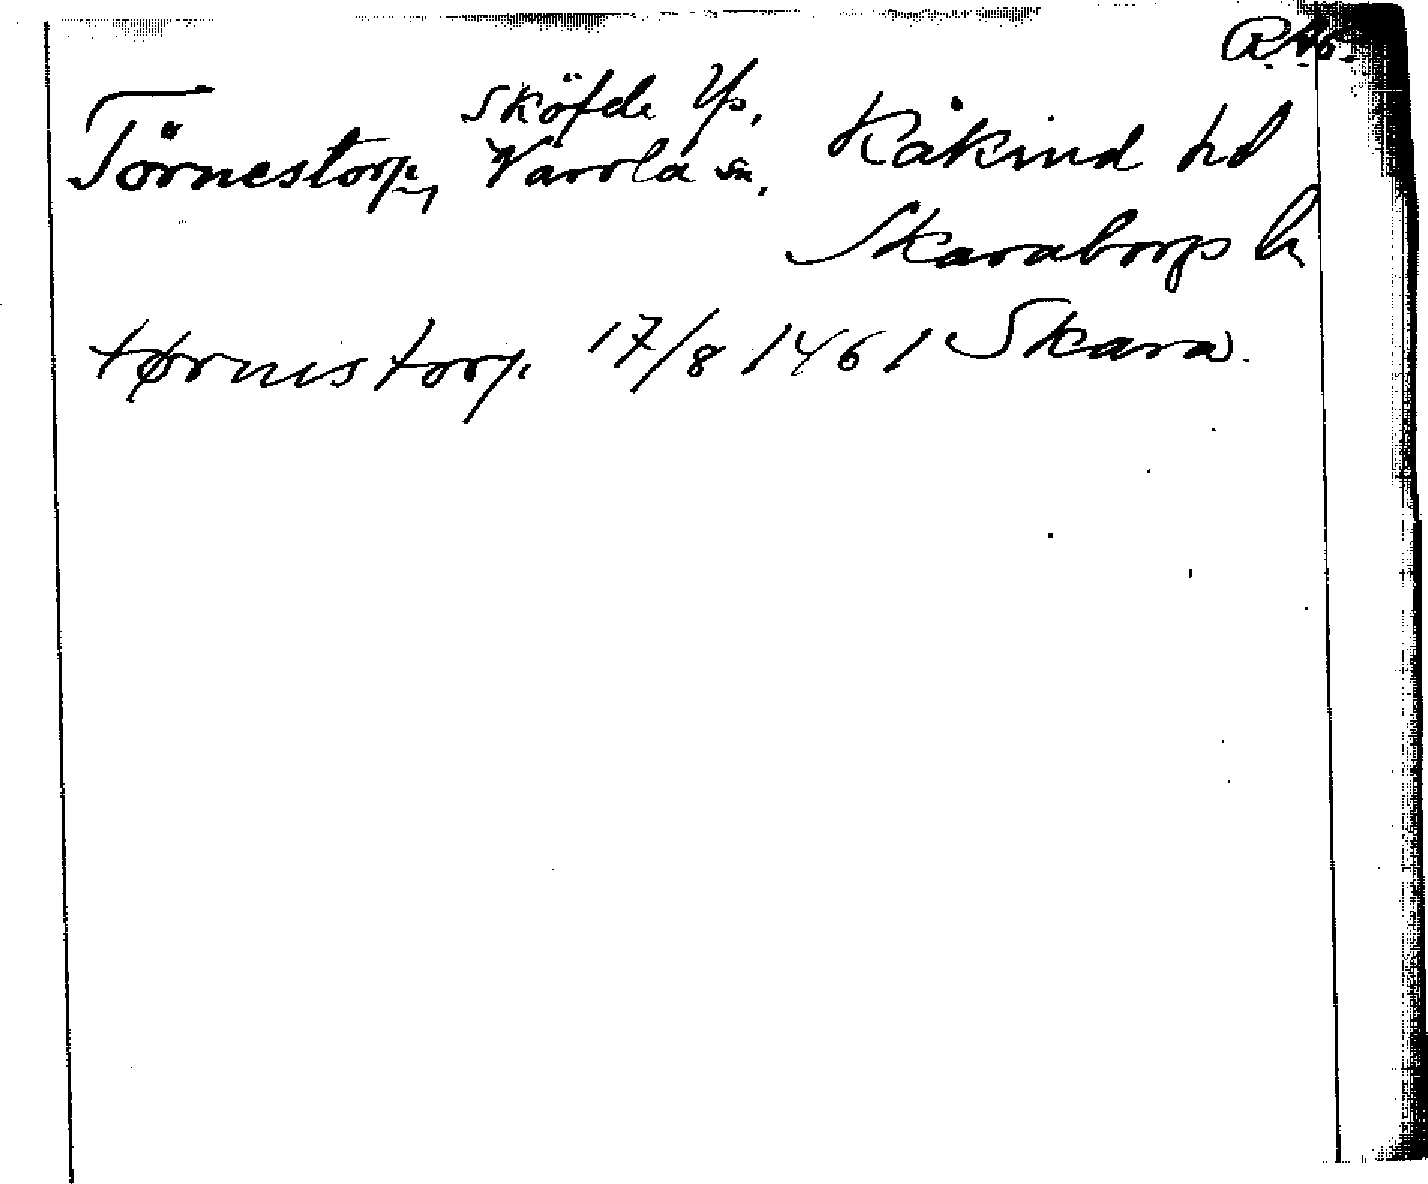 R.Ab.
Sköfde lfs.
Törnestorp, Varola sn, Kåkind hd
Skaraborgs l
tørnis torp. 17/8 1461 Skara.